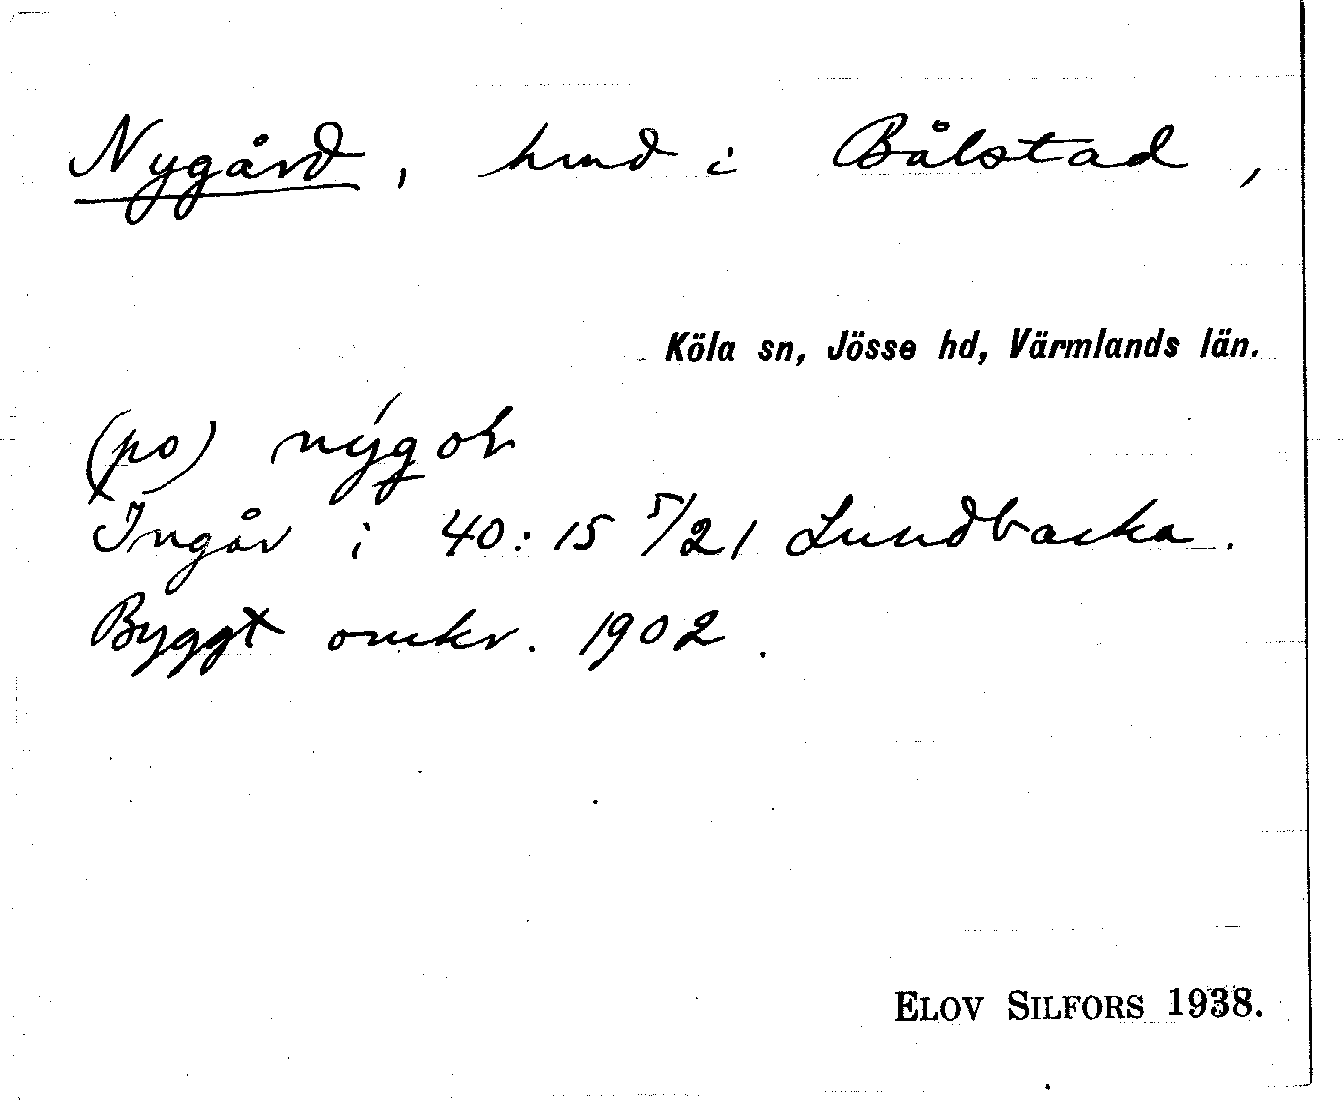 Nygård, hmd i Bålstad,
Köla sn, Jösse hd, Värmlands län.
(po) nýgoḷ
Ingår i 40:15 5/21 Lundbacka.
Byggt omkr. 1902.
ELOV SILFORS 1938.